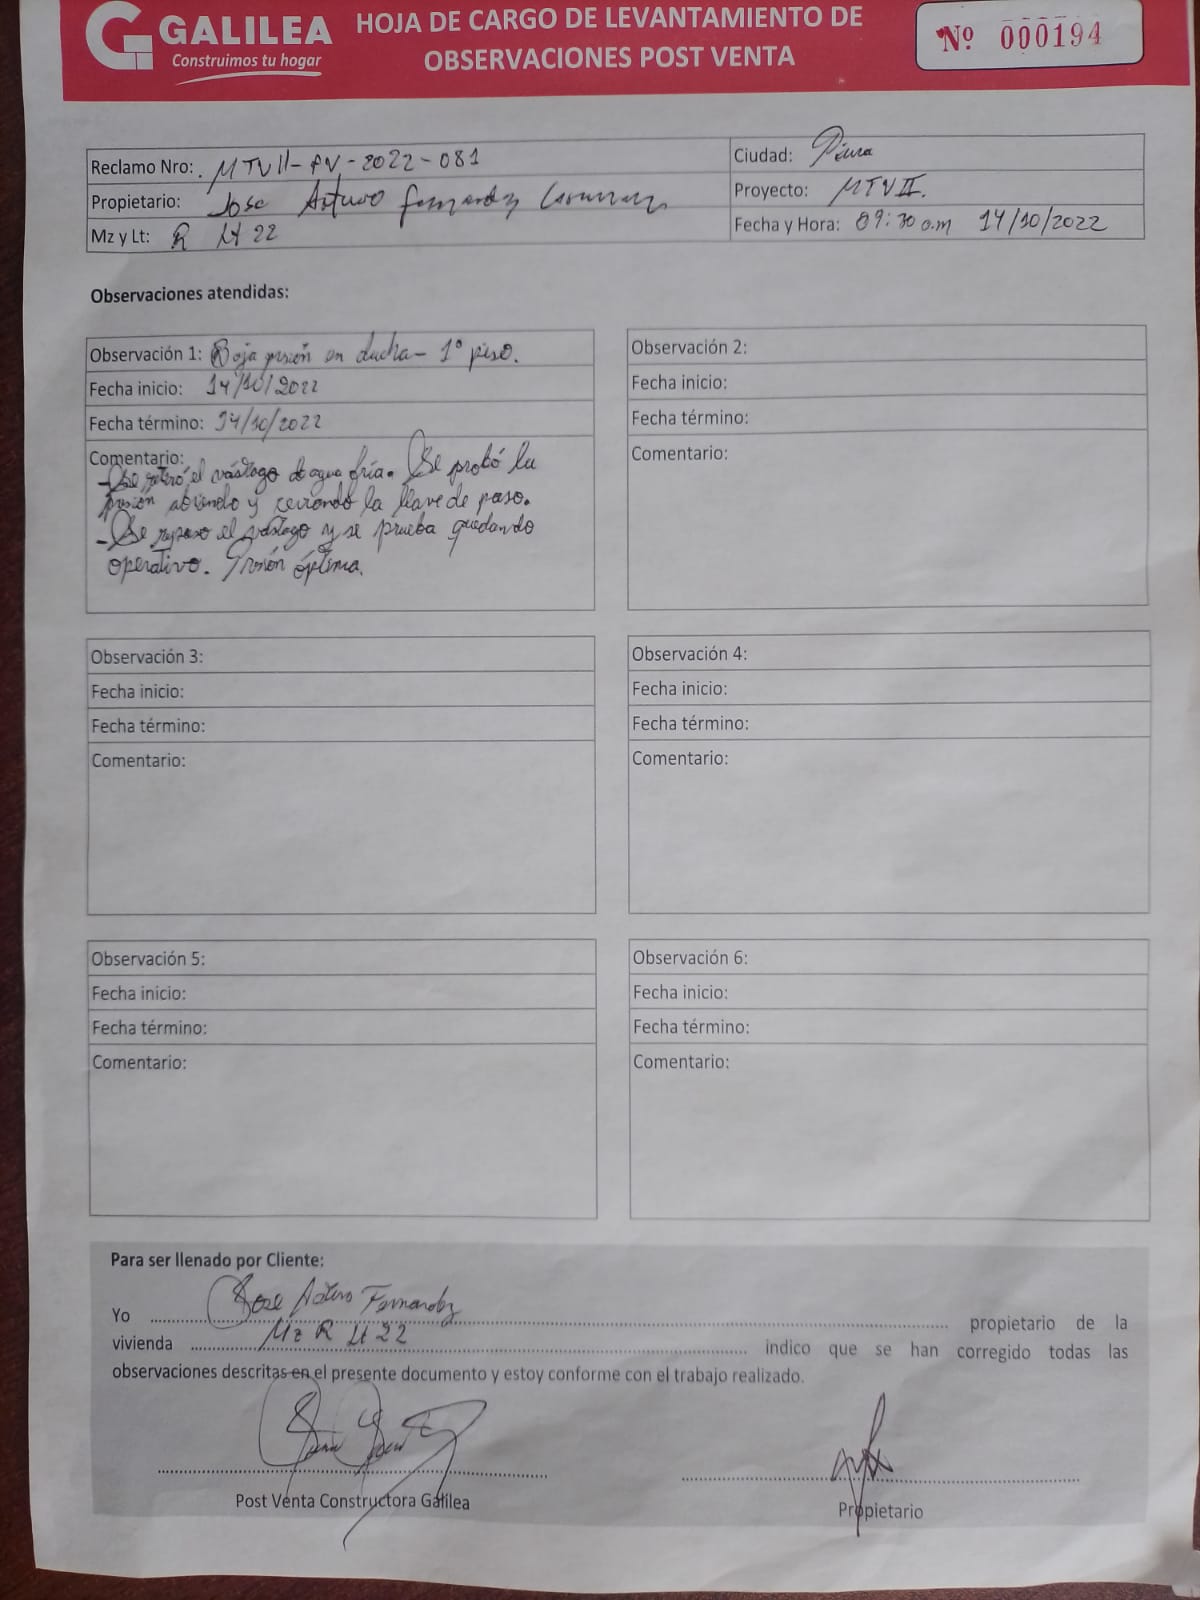 GALILEA
Construimos tu hogar
HOJA DE CARGO DE LEVANTAMIENTO DE
OBSERVACIONES POST VENTA
Nº 000194
Reclamo Nro: MTVII-PV-2022-081
Ciudad: Piura
Propietario: Jose Arturo Fernandez
Proyecto: MTVII.
Mz y Lt: R Lt 22
Fecha y Hora: 09:30 a.m 14/10/2022
Observaciones atendidas:
Observación 1: Baja presión en ducha - 1º piso.
Fecha inicio: 14/10/2022
Fecha término: 14/10/2022
Comentario:
- Se retiró el vástago de agua fría. Se probó la
presión abriendo y cerrando la llave de paso.
- Se repuso el vástago y se prueba quedando
operativo. Presión óptima.
Observación 2:
Fecha inicio:
Fecha término:
Comentario:
Observación 3:
Fecha inicio:
Fecha término:
Comentario:
Observación 4:
Fecha inicio:
Fecha término:
Comentario:
Observación 5:
Fecha inicio:
Fecha término:
Comentario:
Observación 6:
Fecha inicio:
Fecha término:
Comentario:
Para ser llenado por Cliente:
Yo Jose Arturo Fernandez propietario de la
vivienda Mz R Lt 22 indico que se han corregido todas las
observaciones descritas en el presente documento y estoy conforme con el trabajo realizado.
Post Venta Constructora Galilea
Propietario